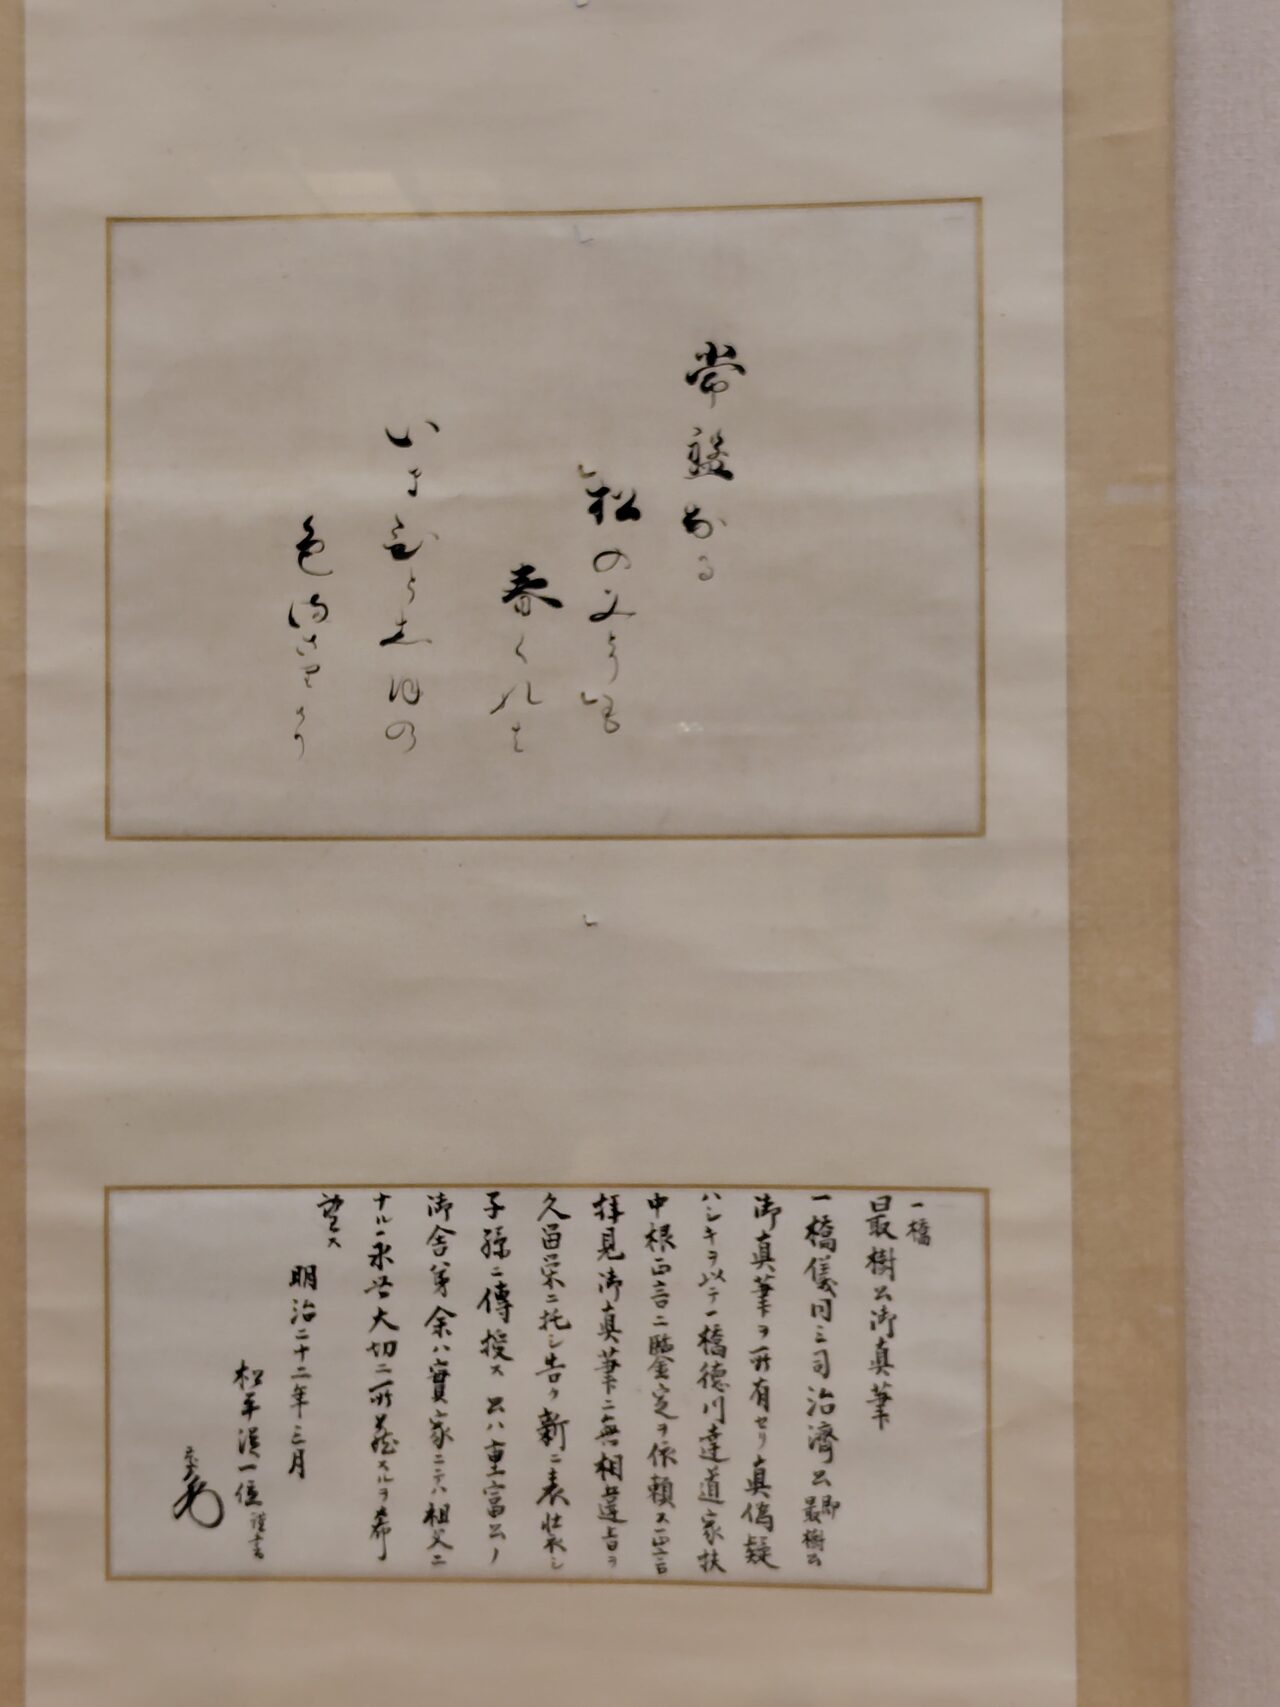 常盤なる
松のみとりも
春くれは
いまひとしほの
色まさりけり
一橋
最樹公御真筆
一橋儀同三司治済公即最樹公
御真筆ヲ所有セリ真偽疑
ハシキヲ以テ一橋徳川達道家扶
中根正言ニ鑒定ヲ依頼ス正言
拝見御真筆ニ無相違旨ヲ
久留栄ニ托シ告ク新ニ表装シ
子孫ニ傳授ス公ハ重富公ノ
御舎弟余ハ實家ニテハ祖父ニ
ナル永世大切ニ所蔵スルヲ希
望ス
明治二十二年三月
松平従一位謹書
慶永